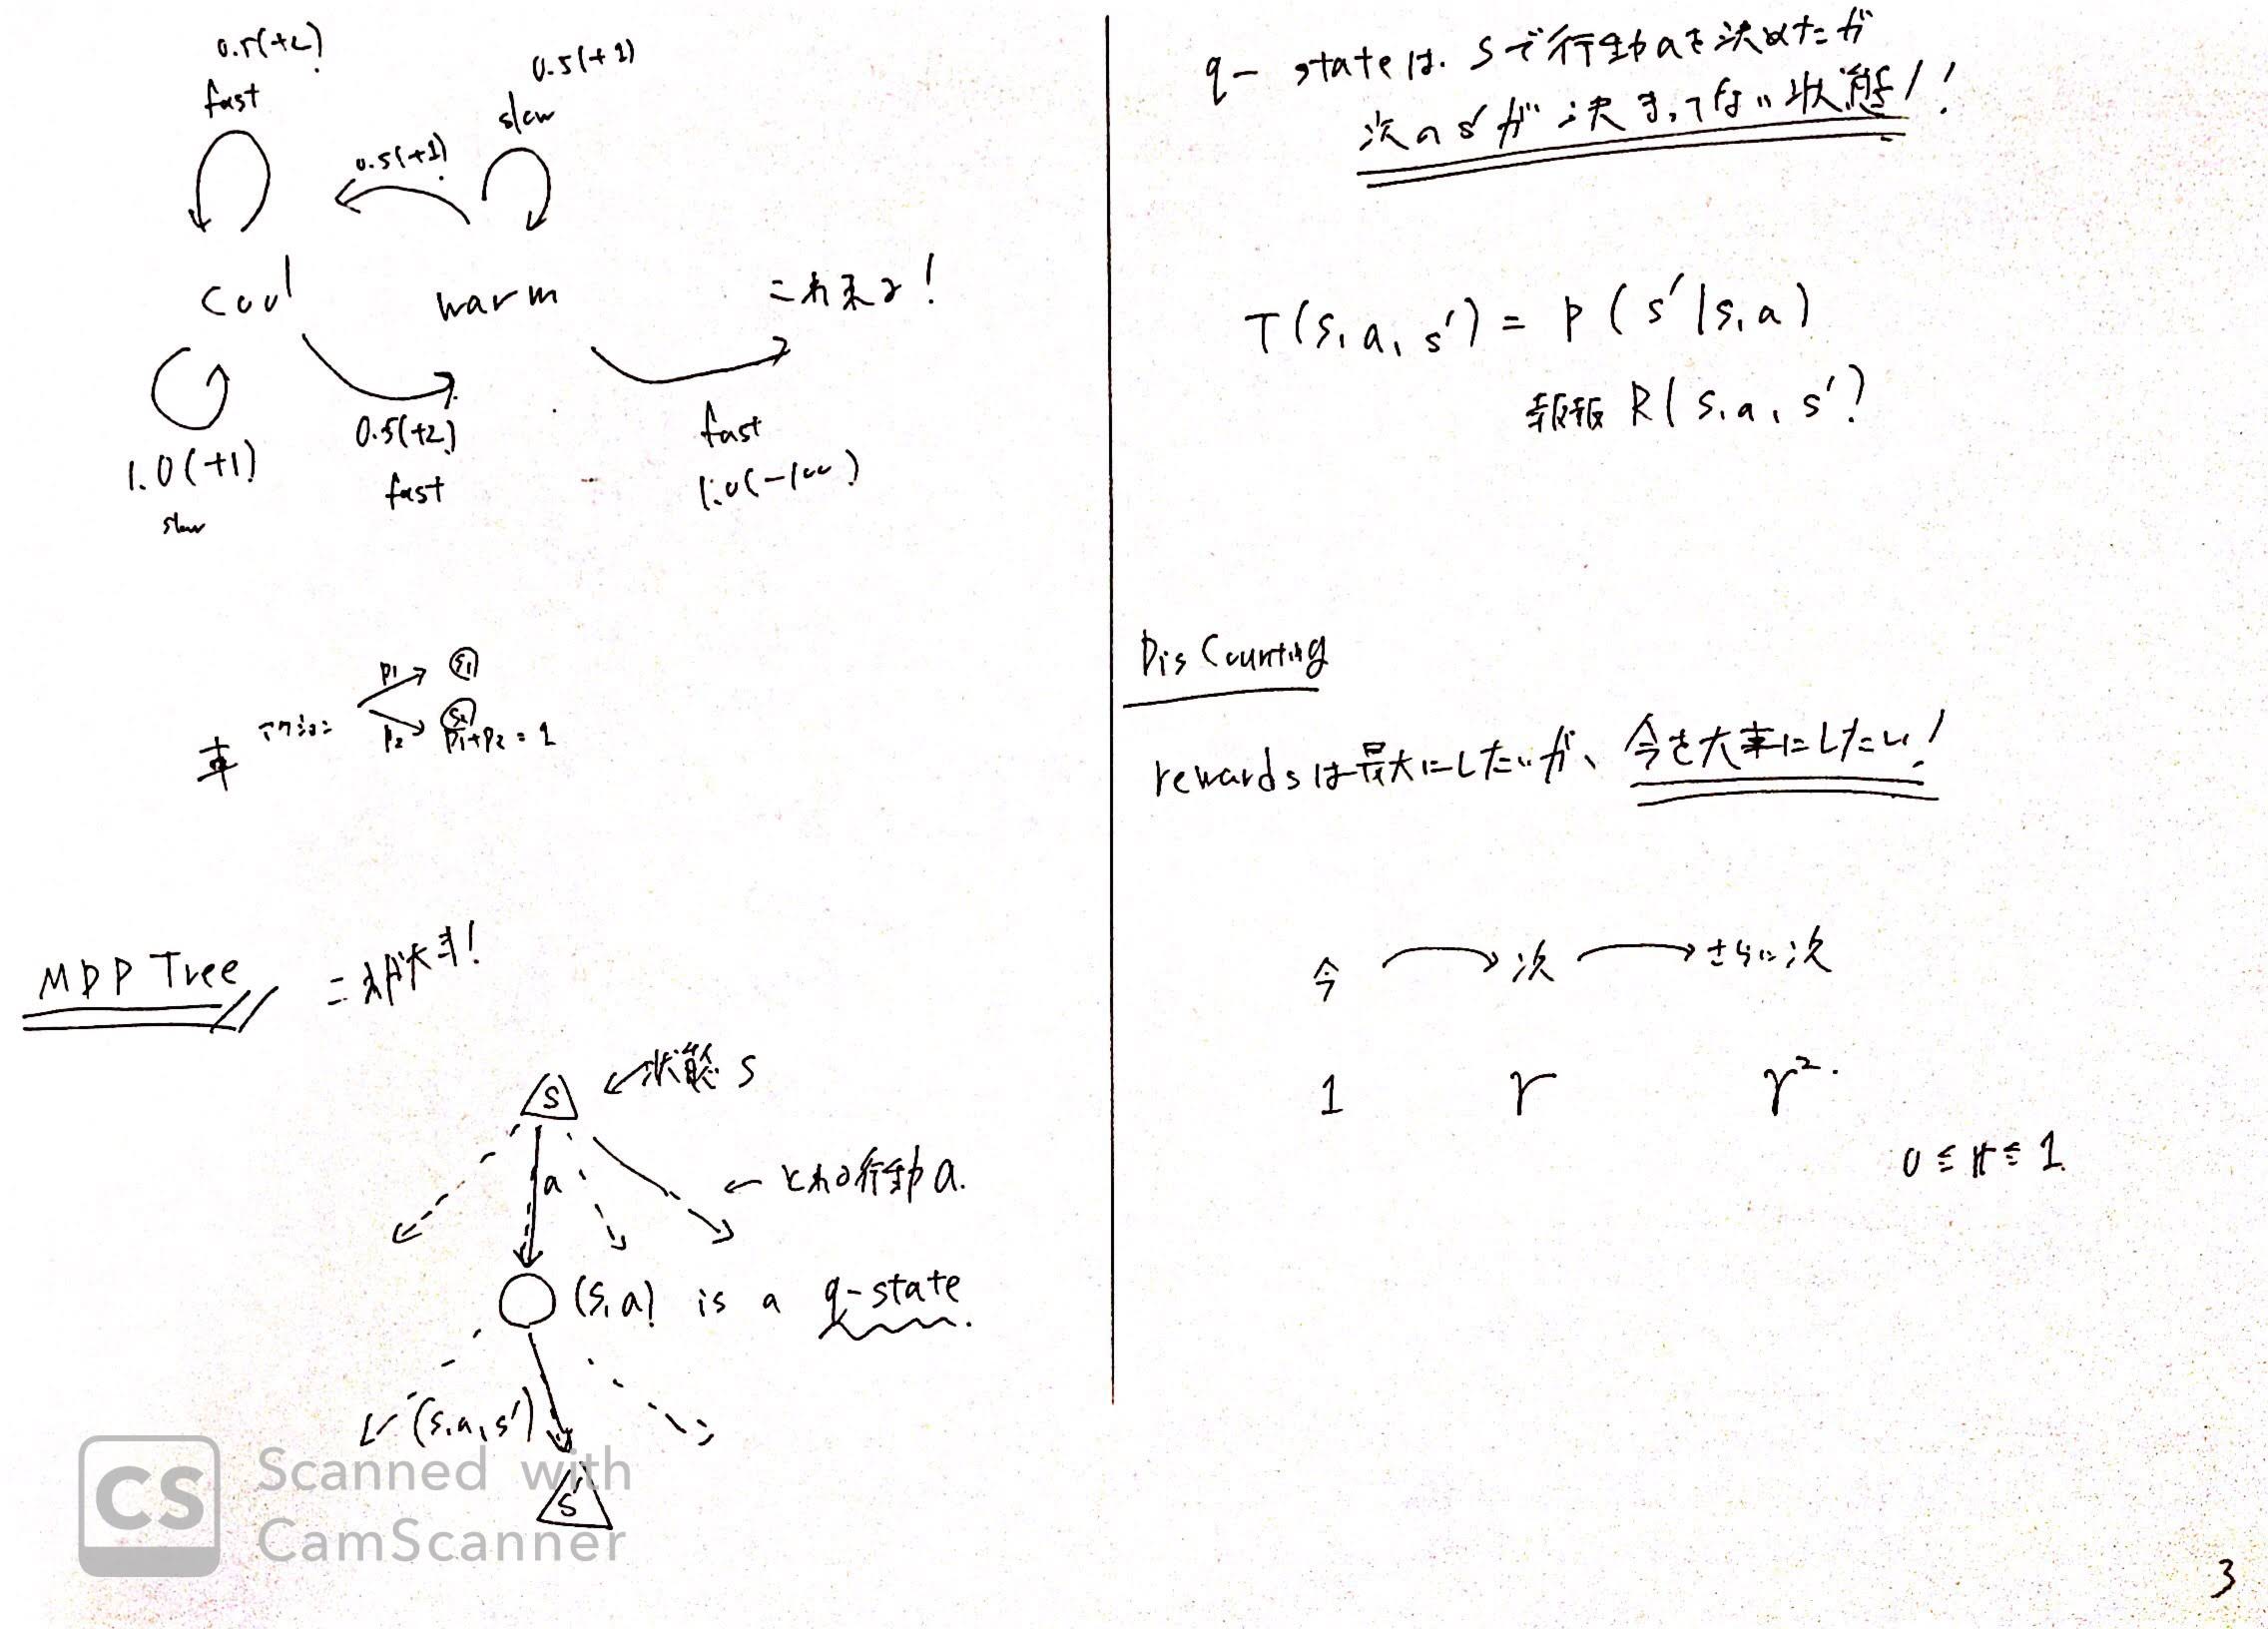 0.5(+2)
fast
0.5(+1)
slow
0.5(+1)
cool
warm
これまつ!
1.0(+1)
slow
0.5(+2)
fast
fast
1.0(-100)
車 アクション
p1 S1
p2 S2
p1+p2=1
MDP Tree
これが大事!
S
状態 S
a
とれる行動 a.
(s,a) is a q-state
(s,a,s')
S'
q-stateは. Sで行動aを決めたが
次のs'が決まってない状態!!
T(s,a,s') = P(s'|s,a)
報報 R(s,a,s')
Discounting
rewardsは最大にしたいが、今を大事にしたい!
今 次 さらに次
1 γ γ².
0≦γ≦1
CS Scanned with
CamScanner
3